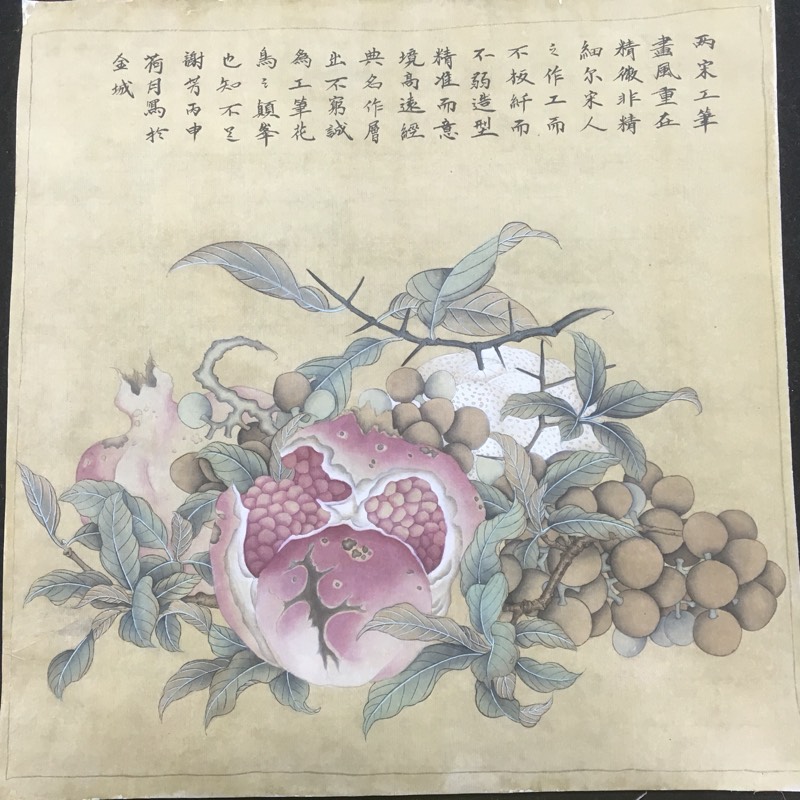 两宋工筆
畫風重在
精微非精
細尔宋人
之作工而
不板纤而
不弱造型
精准而意
境高遠經
典名作層
出不窮誠
為工筆花
鳥之顛峯
也知不足
謝芳丙申
荷月寫於
金城